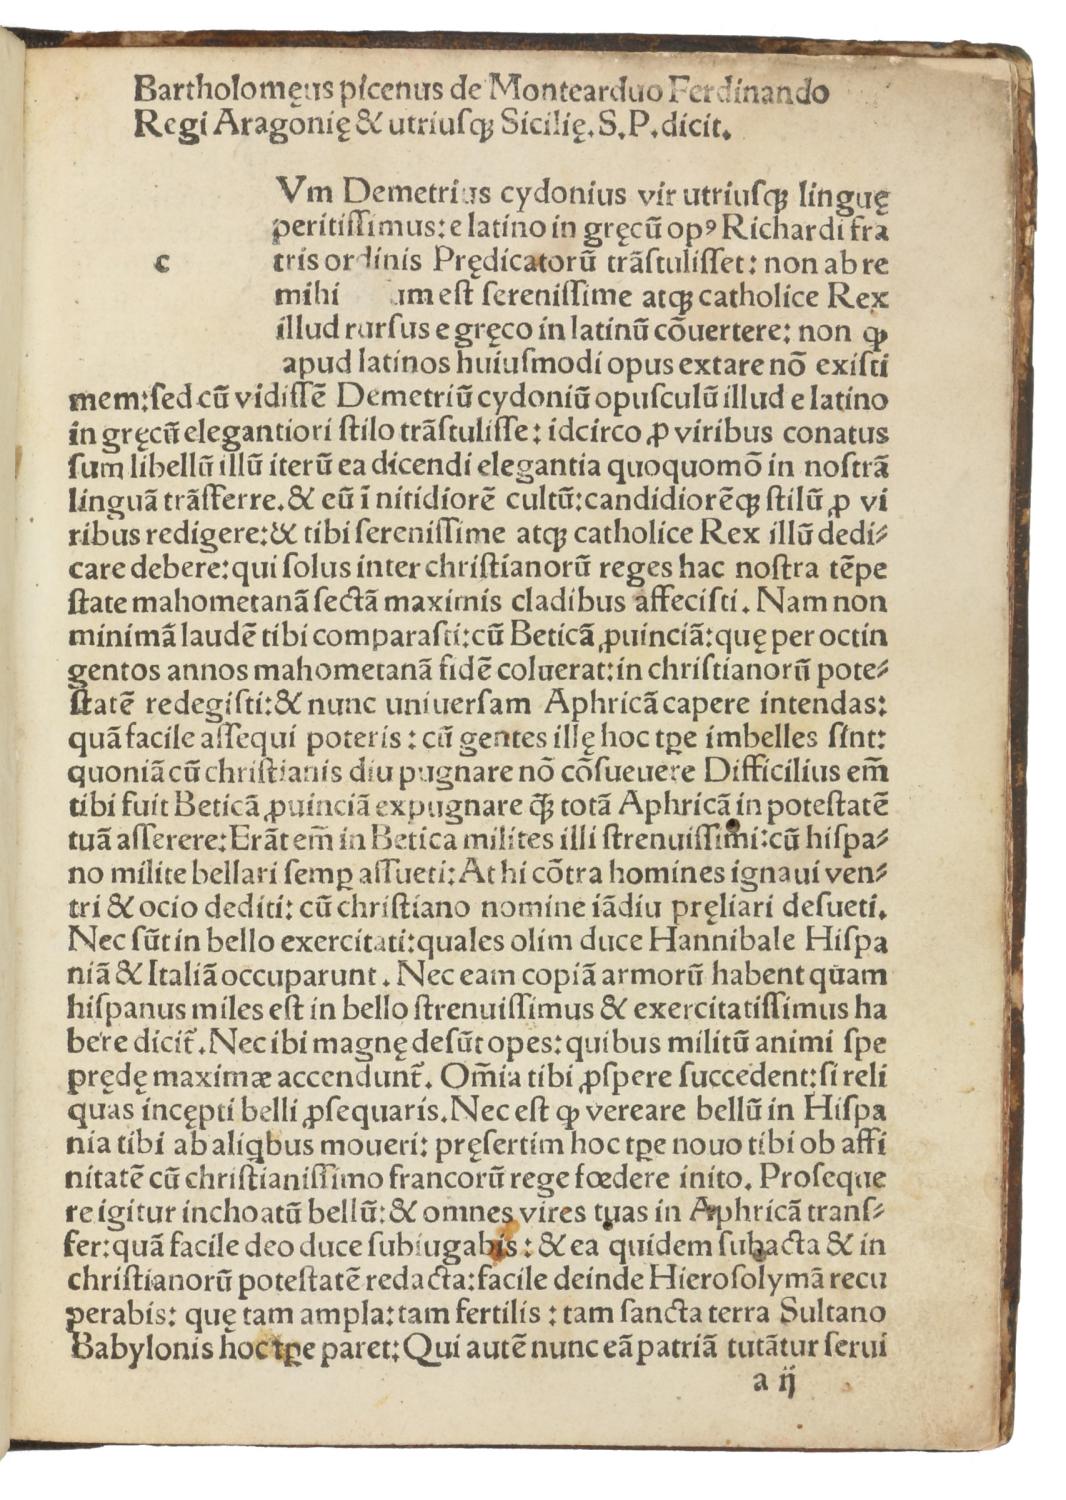 Bartholomęus picenus de Montearduo Ferdinando
Regi Aragonię & utriusqꝫ Sicilię. S. P. dicit.
c
Vm Demetrius cydonius vir utriusqꝫ linguę
peritissimus: e latino in gręcū opꝰ Richardi fra
tris ordinis Prędicatorū trāstulisset: non ab re
mihi est serenissime atqꝫ catholice Rex
illud rursus e gręco in latinū cōuertere: non ꝙ
apud latinos huiusmodi opus extare nō existi
mem: sed cū vidissē Demetriū cydoniū opusculū illud e latino
in gręcū elegantiori stilo trāstulisse: idcirco ꝓ viribus conatus
sum libellū illū iterū ea dicendi elegantia quoquomō in nostrā
linguā trāsferre. & eū ī nitidiorē cultū: candidiorēqꝫ stilū ꝓ vi
ribus redigere: & tibi serenissime atqꝫ catholice Rex illū dedi⸗
care debere: qui solus inter christianorū reges hac nostra tēpe
state mahometanā sectā maximis cladibus affecisti. Nam non
minimā laudē tibi comparasti: cū Beticā ꝓuinciā: quę per octin
gentos annos mahometanā fidē coluerat: in christianorū pote⸗
statē redegisti: & nunc uniuersam Aphricā capere intendas:
quā facile assequi poteris: cū gentes illę hoc tꝑe imbelles sint:
quoniā cū christianis diu pugnare nō cōsueuere Difficilius em̄
tibi fuit Beticā ꝓuinciā expugnare q̄ꝫ totā Aphricā in potestatē
tuā asserere: Erāt em̄ in Betica milites illi strenuissimi: cū hispa⸗
no milite bellari semꝑ assueti: At hi cōtra homines ignaui ven⸗
tri & ocio dediti: cū christiano nomine iādiu pręliari desueti.
Nec sūt in bello exercitati: quales olim duce Hannibale Hispa
niā & Italiā occuparunt. Nec eam copiā armorū habent quam
hispanus miles est in bello strenuissimus & exercitatissimus ha
bere dicit̄. Nec ibi magnę desūt opes: quibus militū animi spe
prędę maximæ accendunt̄. Om̄ia tibi ꝓspere succedent: si reli
quas incępti belli ꝓsequaris. Nec est ꝙ vereare bellū in Hispa
nia tibi ab aliqbus moueri: pręsertim hoc tꝑe nouo tibi ob affi
nitatē cū christianissimo francorū rege fœdere inito. Proseque
re igitur inchoatū bellū: & omnes vires tuas in Aphricā trans⸗
fer: quā facile deo duce subiugabis: & ea quidem subacta & in
christianorū potestatē redacta: facile deinde Hierosolymā recu
perabis: quę tam ampla: tam fertilis: tam sancta terra Sultano
Babylonis hoc tꝑe paret: Qui autē nunc eā patriā tutātur serui
a ij